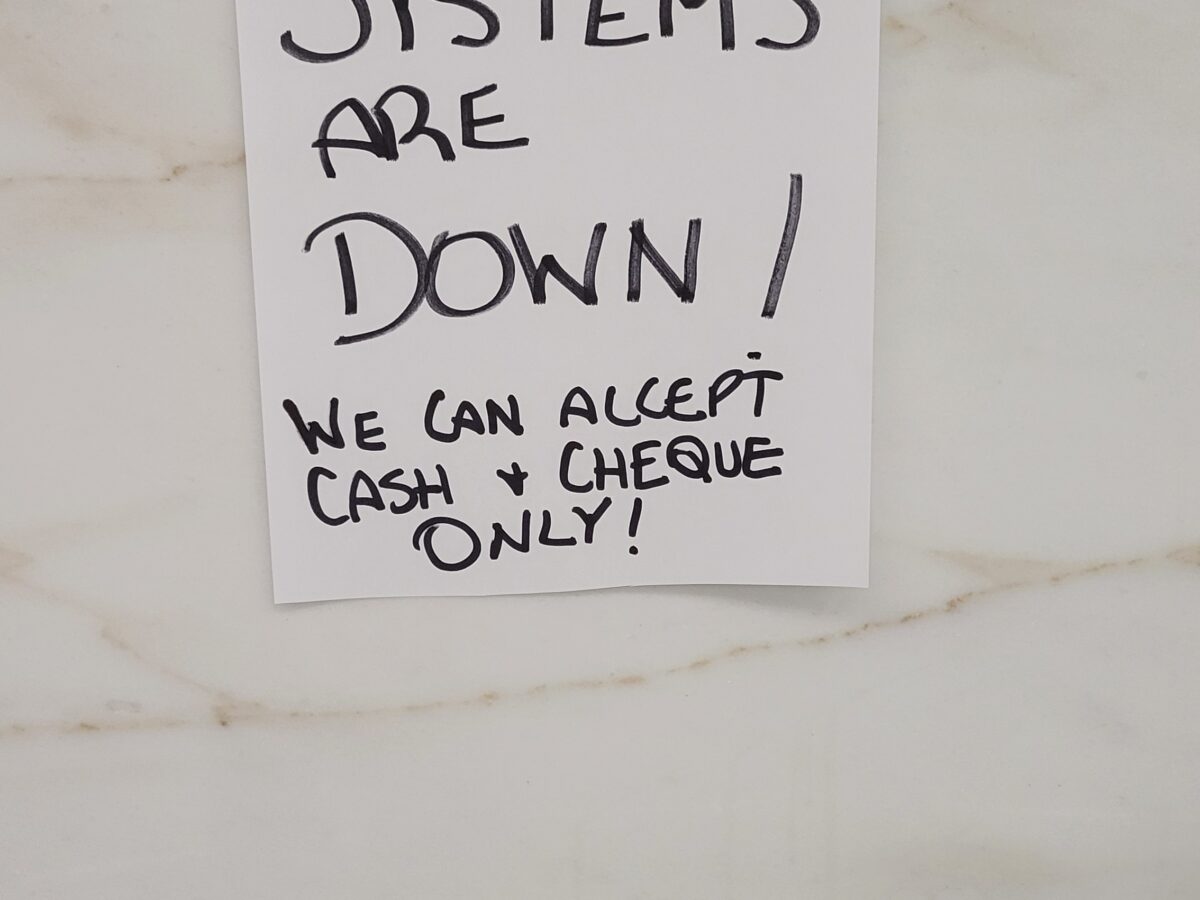 SYSTEMS
ARE
DOWN!
WE CAN ACCEPT
CASH & CHEQUE
ONLY!